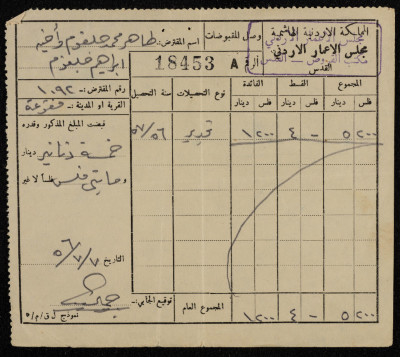 المملكة الاردنية الهاشمية
مجلس الإعمار الاردني
القدس
وصل المقبوضات
18453 A
اسم المقترض: طاهر محمد
وأخيه
ابراهيم
رقم المقترض: ١٠٩٢
القرية او المدينة:
قبضت المبلغ المذكور وقدره
خمسة دنانير دينار
ومايتي فلس فلساً لا غير
التاريخ ٥٦/٧/٧
نموذج ل ق/م/٥
المجموع القسط الفائدة نوع التحصيلات سنة التحصيل
فلس دينار فلس دينار فلس دينار
٥ ٢٠٠ ٤ - ١ ٢٠٠ ٥٧/٥٦
المجموع العام
٥ ٢٠٠ ٤ - ١ ٢٠٠
توقيع الجابي: